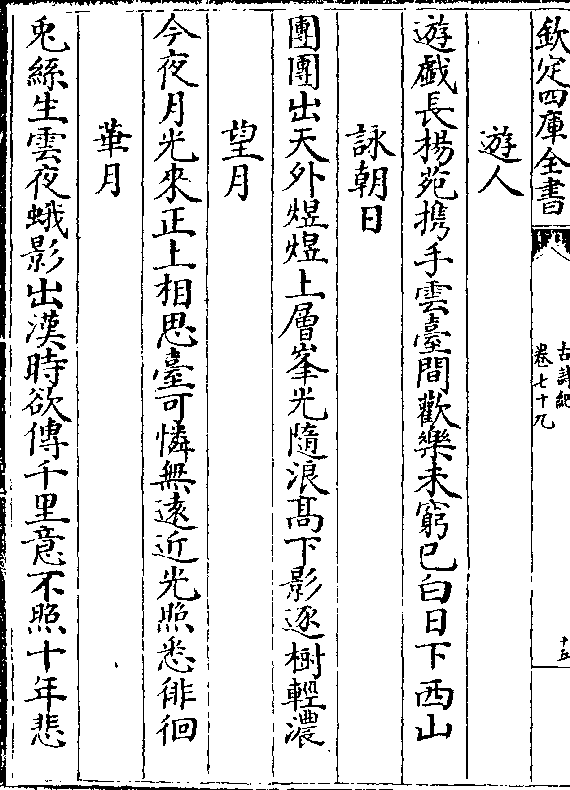 欽定四庫全書
古詩紀
卷七十九
十五
遊人
遊戯長楊苑携手雲臺間歡樂未窮已白日下西山
詠朝日
團團出天外煜煜上層峯光隨浪髙下影逐樹輕濃
望月
今夜月光來正上相思臺可憐無逺近光照悉徘徊
華月
兎絲生雲夜蛾影出漢時欲傳千里意不照十年悲